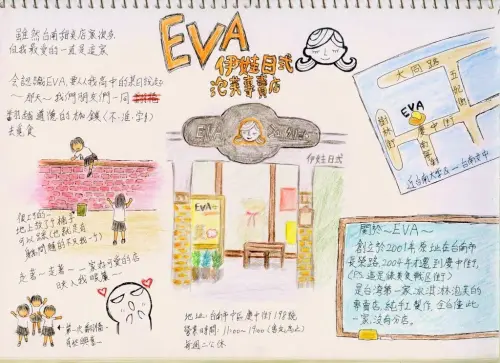 雖然台南甜美店家很多
但我最愛的一直是這家
會認識EVA,要從我高中的某日說起
～那天～我們朋友們一同
去覓食
EVA
伊娃日式
泡芙專賣店
EVA
伊娃日式
大同路
五妃街
樹林街
慶中街
EVA
近台南大學&台南女中
地上放了个桶子
可以踩(也就是去
翻牆的不只我一个)
走著～走著～一家超可愛的店
映入我眼簾～
第一次翻牆
有點興奮
地址:台南市中區慶中街198號
營業時間:11:00～19:00(售完為止)
每週二公休
關於～EVA～
創立於2001年原址在台南市
長榮路,2004年才遷到慶中街
(PS.這是缺美食戰區街)
是台灣第一家冰淇淋泡芙的
專賣店,純手工製作,全台僅此
一家,沒有分店。